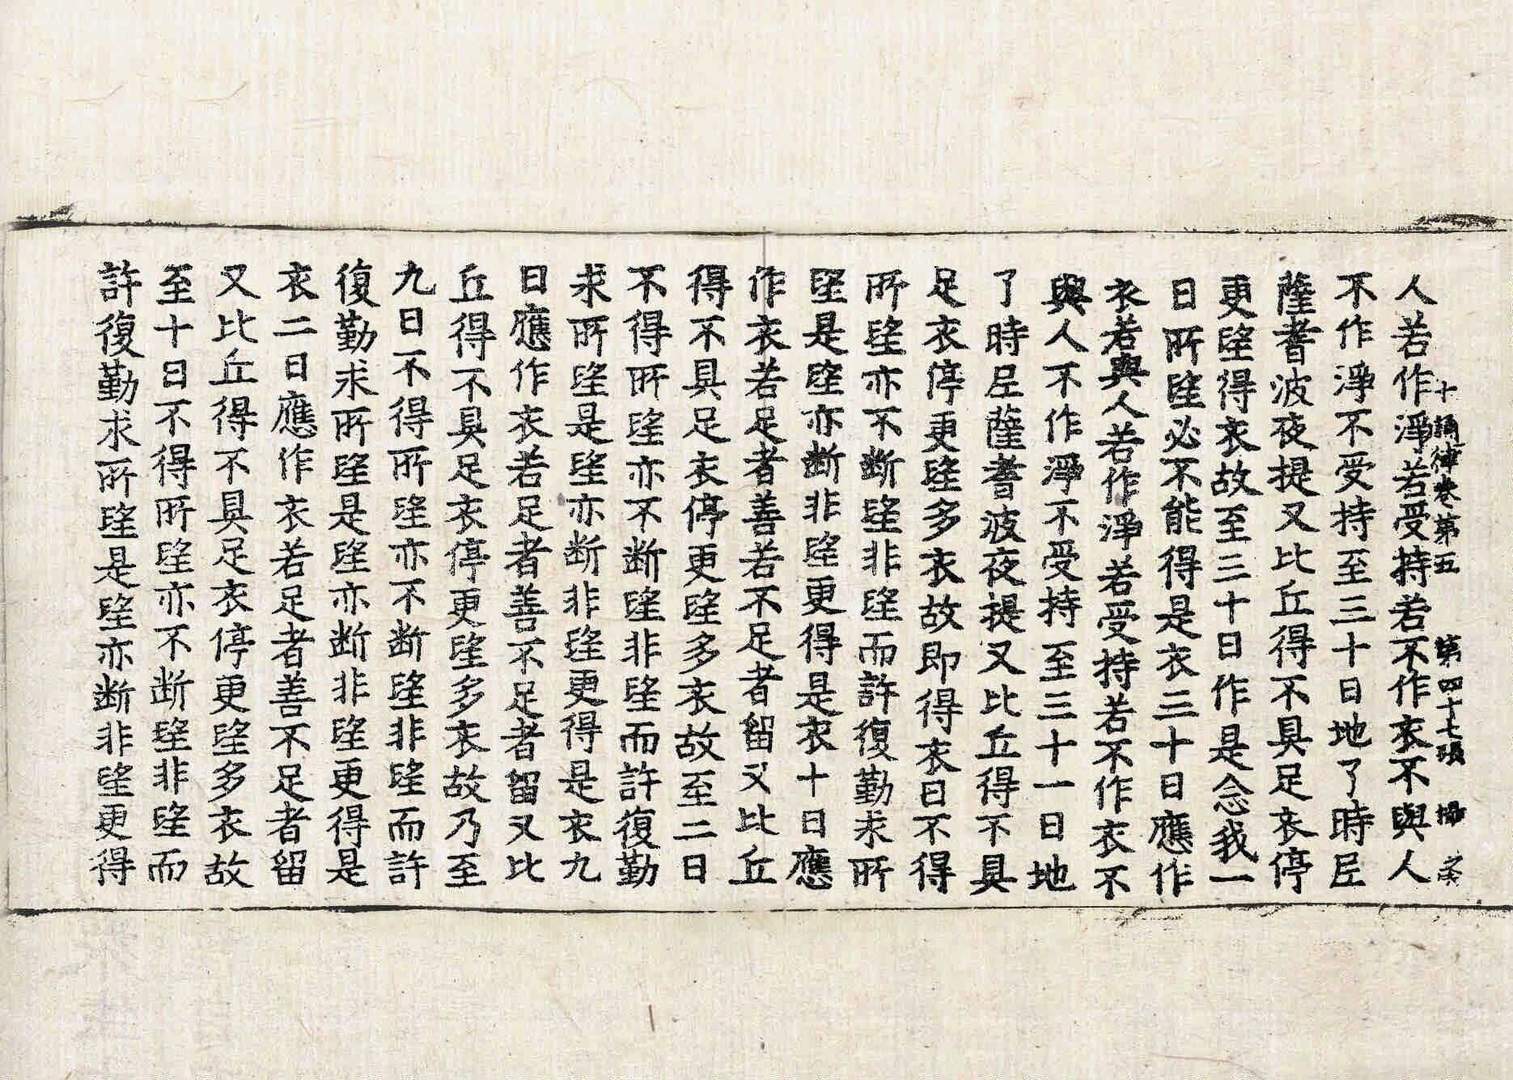 十誦律卷第五 第四十七張
人若作淨若受持若不作衣不與人
不作淨不受持至三十日地了時尼
薩耆波夜提又比丘得不具足衣停
更望得衣故至三十日作是念我一
日所望必不能得是衣三十日應作
衣若與人若作淨若受持若不作衣不
與人不作淨不受持至三十一日地
了時尼薩耆波夜提又比丘得不具
足衣停更望多衣故即得衣日不得
所望亦不断望非望而許復勤求所
望是望亦断非望更得是衣十日應
作衣若足者善若不足者留又比丘
得不具足衣停更望多衣故至二日
不得所望亦不断望非望而許復勤
求所望是望亦断非望更得是衣九
日應作衣若足者善不足者留又比
丘得不具足衣停更望多衣故乃至
九日不得所望亦不断望非望而許
復勤求所望是望亦断非望更得是
衣二日應作衣若足者善不足者留
又比丘得不具足衣停更望多衣故
至十日不得所望亦不断望非望而
許復勤求所望是望亦断非望更得